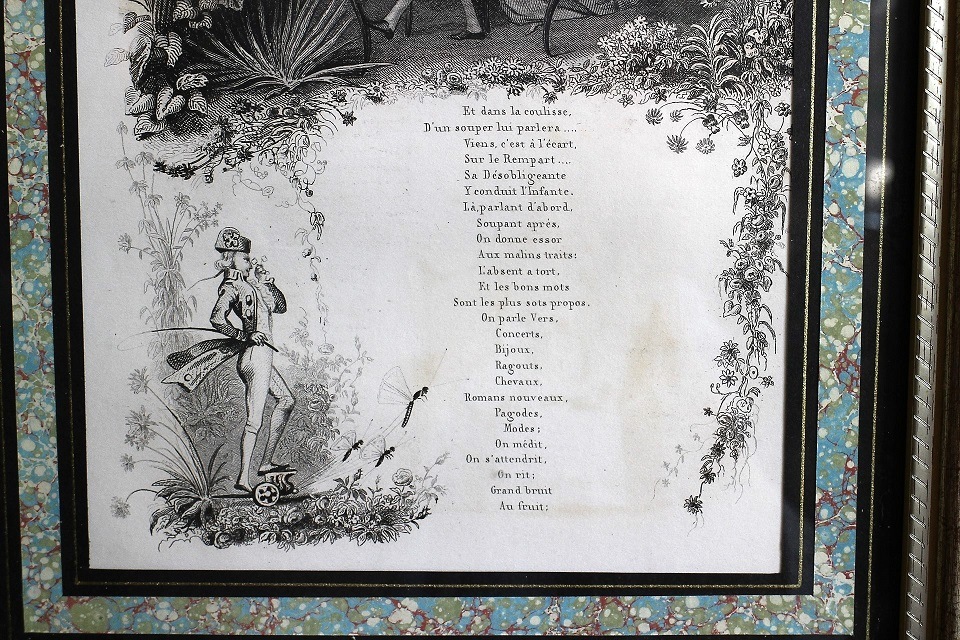 Et dans la coulisse,
D'un souper lui parlera ....
Viens, c'est à l'écart,
Sur le Rempart ....
Sa Désobligeante
Y conduit l'Infante.
Là, parlant d'abord,
Soupant après,
On donne essor
Aux malins traits:
L'absent a tort,
Et les bons mots
Sont les plus sots propos.
On parle Vers,
Concerts,
Bijoux,
Ragouts,
Chevaux,
Romans nouveaux,
Pagodes,
Modes;
On médit,
On s'attendrit,
On rit;
Grand bruit
Au fruit;